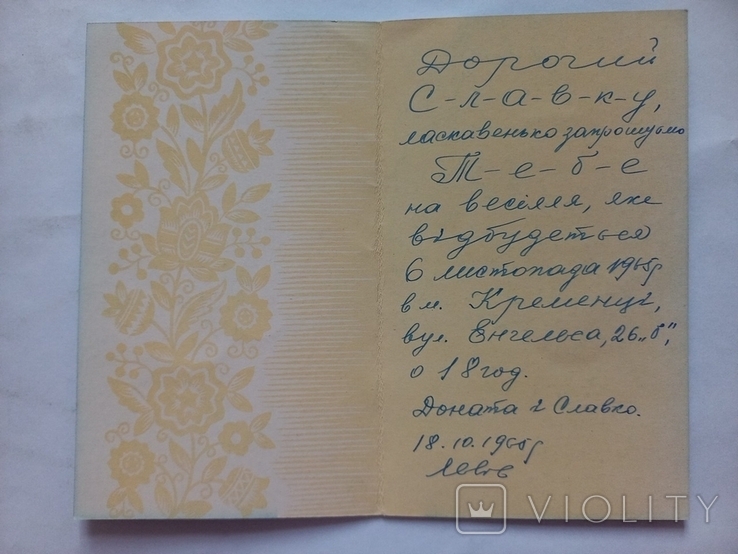 Дорогий
С-л-а-в-к-у,
ласкавенько запрошуємо
Т-е-б-е
на весілля, яке
відбудеться
6 листопада 1965р
в м. Кременці,
вул. Енгельса, 26 „б",
о 18 год.
Доната і Славко.
18.10.1965р
Львів
VIOLITY